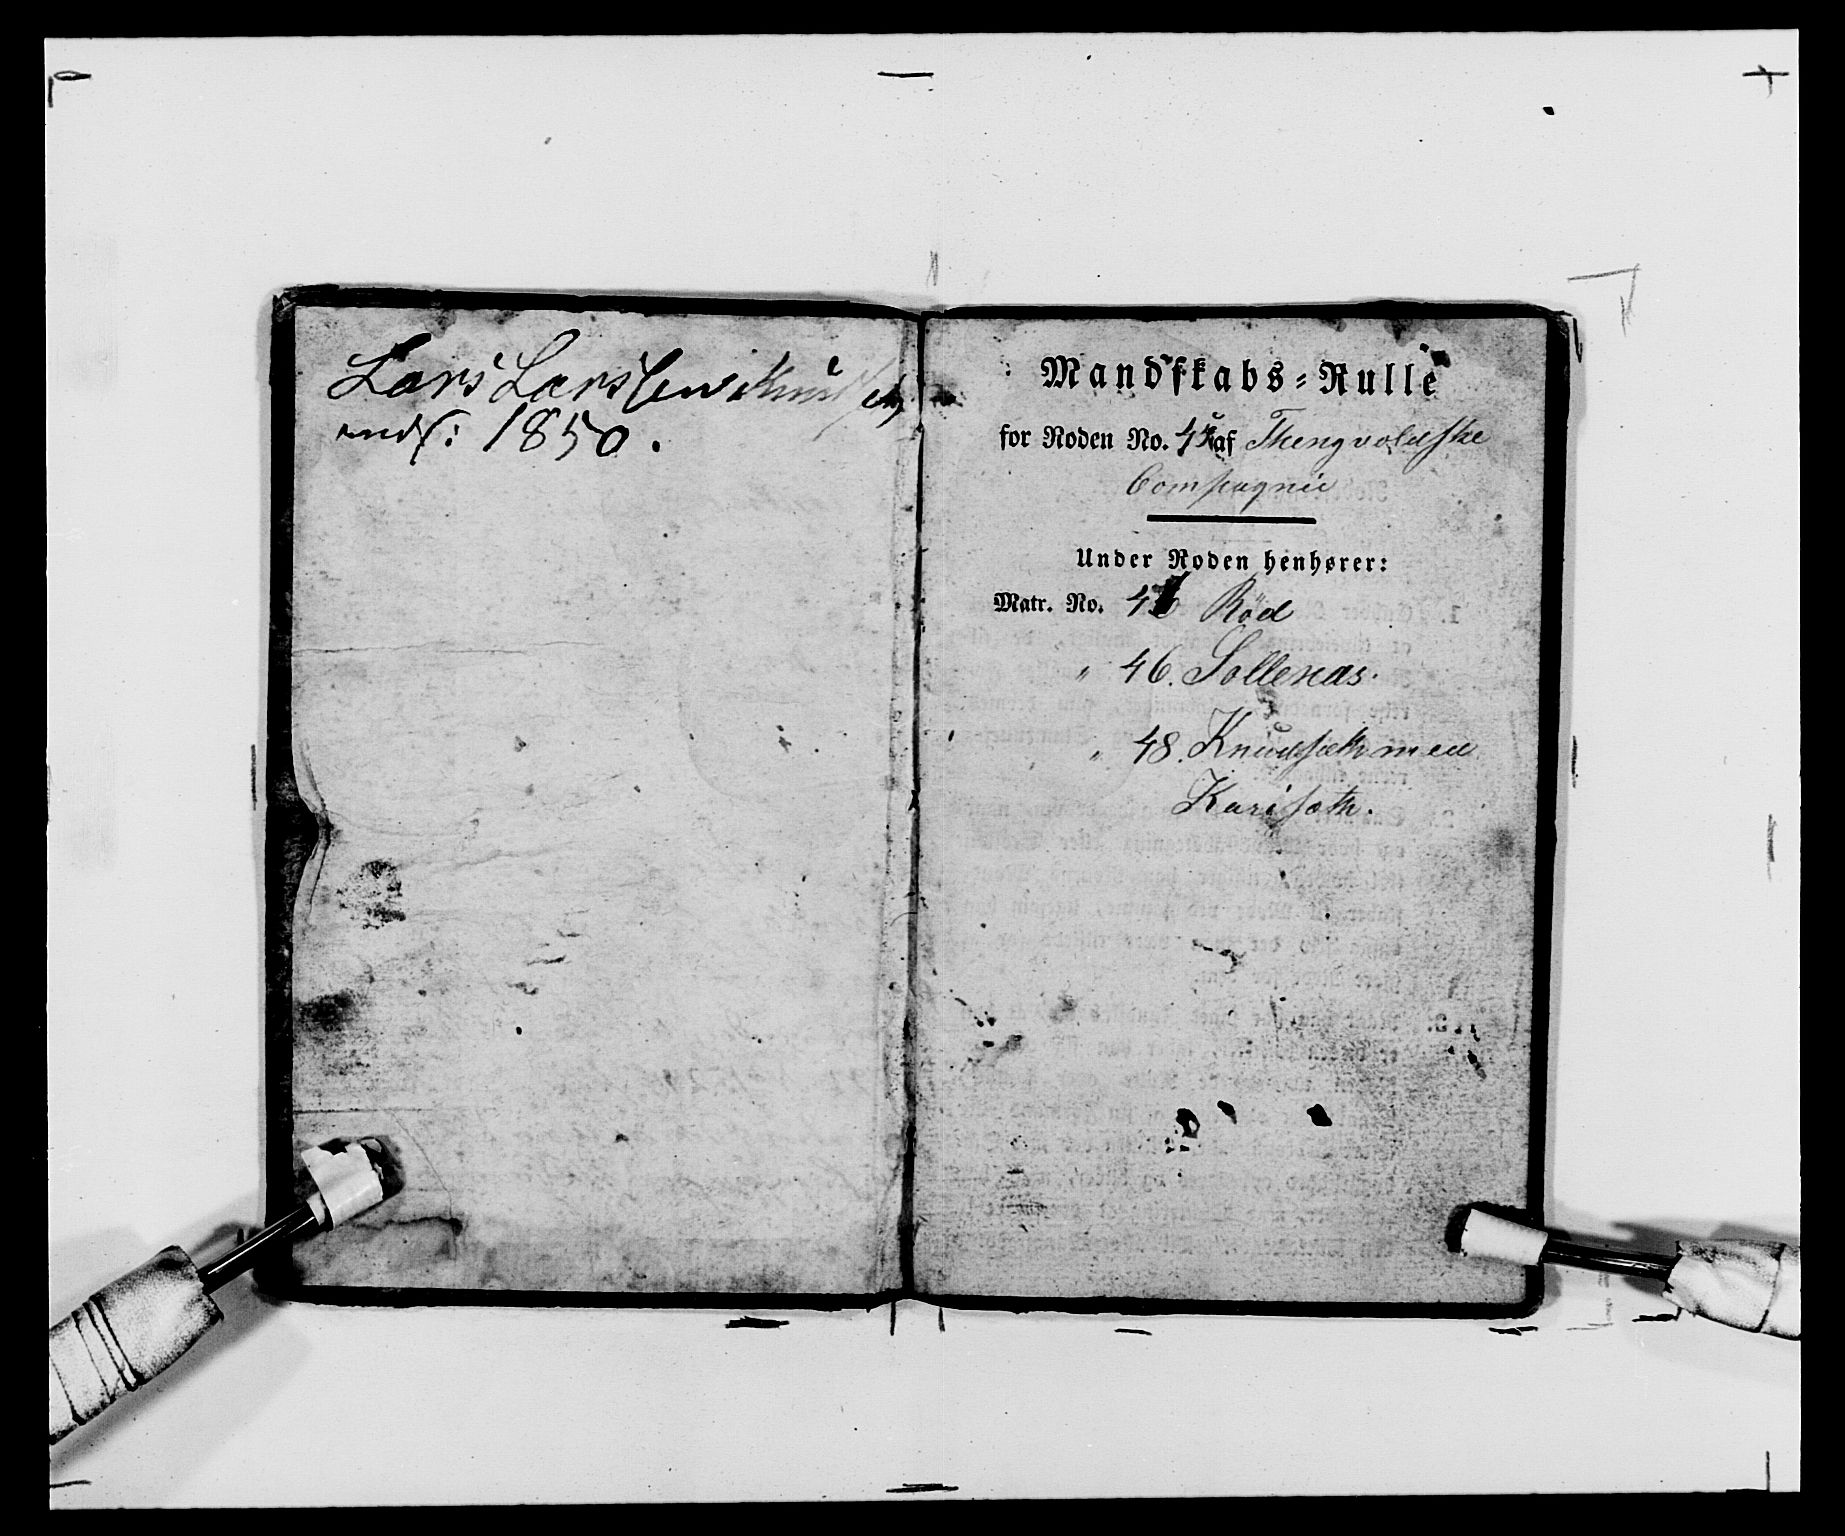 Lars Larssen Knudsen
1850.
Mandskabs-Rulle
for Roden No. af Thingvoldske
Compagnie
Under Roden henhører:
Matr. No. Röd
„ 46. Sollenas.
„ 48. Knudsæth med
Karisæth.